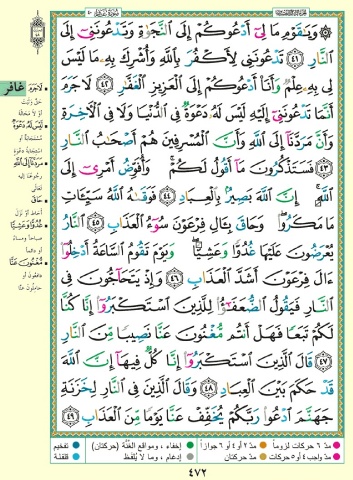 وَيَٰقَوْمِ مَا لِىٓ أَدْعُوكُمْ إِلَى ٱلنَّجَوٰةِ وَتَدْعُونَنِىٓ إِلَى
ٱلنَّارِ ٤١ تَدْعُونَنِى لِأَكْفُرَ بِٱللَّهِ وَأُشْرِكَ بِهِۦ مَا لَيْسَ
لِى بِهِۦ عِلْمٌ وَأَنَا۠ أَدْعُوكُمْ إِلَى ٱلْعَزِيزِ ٱلْغَفَّٰرِ ٤٢ لَا جَرَمَ
أَنَّمَا تَدْعُونَنِىٓ إِلَيْهِ لَيْسَ لَهُۥ دَعْوَةٌ فِى ٱلدُّنْيَا وَلَا فِى ٱلْءَاخِرَةِ
وَأَنَّ مَرَدَّنَآ إِلَى ٱللَّهِ وَأَنَّ ٱلْمُسْرِفِينَ هُمْ أَصْحَٰبُ ٱلنَّارِ
٤٣ فَسَتَذْكُرُونَ مَآ أَقُولُ لَكُمْ ۚ وَأُفَوِّضُ أَمْرِىٓ إِلَى
ٱللَّهِ ۚ إِنَّ ٱللَّهَ بَصِيرٌۢ بِٱلْعِبَادِ ٤٤ فَوَقَىٰهُ ٱللَّهُ سَيِّـَٔاتِ
مَا مَكَرُوا۟ ۖ وَحَاقَ بِـَٔالِ فِرْعَوْنَ سُوٓءُ ٱلْعَذَابِ ٤٥ ٱلنَّارُ
يُعْرَضُونَ عَلَيْهَا غُدُوًّا وَعَشِيًّا ۖ وَيَوْمَ تَقُومُ ٱلسَّاعَةُ أَدْخِلُوٓا۟
ءَالَ فِرْعَوْنَ أَشَدَّ ٱلْعَذَابِ ٤٦ وَإِذْ يَتَحَآجُّونَ فِى
ٱلنَّارِ فَيَقُولُ ٱلضُّعَفَٰٓؤُا۟ لِلَّذِينَ ٱسْتَكْبَرُوٓا۟ إِنَّا كُنَّا
لَكُمْ تَبَعًا فَهَلْ أَنتُم مُّغْنُونَ عَنَّا نَصِيبًا مِّنَ ٱلنَّارِ
٤٧ قَالَ ٱلَّذِينَ ٱسْتَكْبَرُوٓا۟ إِنَّا كُلٌّ فِيهَآ إِنَّ ٱللَّهَ
قَدْ حَكَمَ بَيْنَ ٱلْعِبَادِ ٤٨ وَقَالَ ٱلَّذِينَ فِى ٱلنَّارِ لِخَزَنَةِ
جَهَنَّمَ ٱدْعُوا۟ رَبَّكُمْ يُخَفِّفْ عَنَّا يَوْمًا مِّنَ ٱلْعَذَابِ ٤٩
غافر
لَا جَرَمَ
لَيْسَ لَهُ دَعْوَةٌ
حَاقَ
غُدُوًّا وَعَشِيًّا
مُغْنُونَ عَنَّا
مدّ ٦ حركات لزوماً
مدّ ٢ أو ٤ أو ٦ جوازاً
إخفاء، ومواقع الغُنَّة (حركتان)
تفخيم
مدّ واجب ٤ أو ٥ حركات
مدّ حركتان
إدغام، وما لا يُلفَظ
قلقلة
٤٧٢